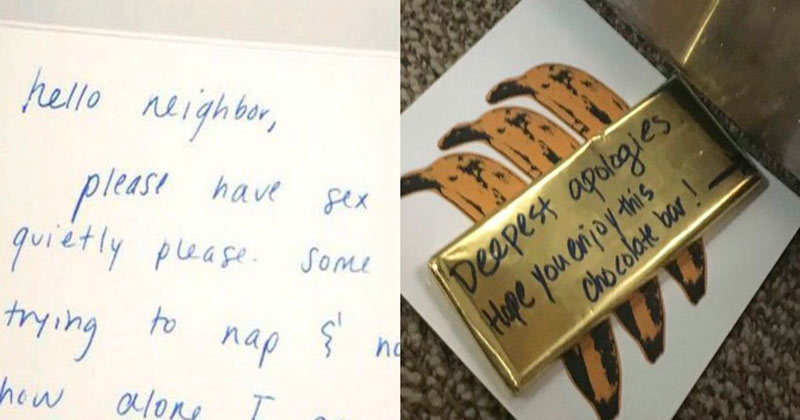 hello neighbor,
please have sex
quietly please. some
trying to nap &
how alone I
Deepest apologies
Hope you enjoy this
chocolate bar!